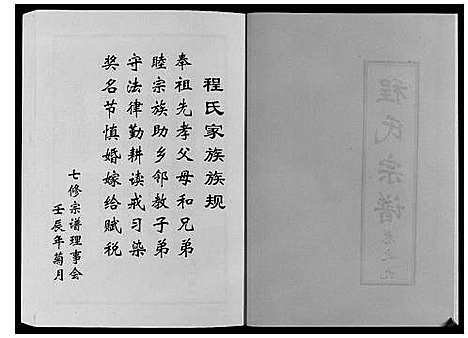 程氏家族族规
奉祖先孝父母和兄弟
睦宗族助乡邻教子弟
守法律勤耕读戒习染
奖名节慎婚嫁给赋税
七修宗谱理事会
壬辰年菊月
程氏宗谱
卷之九